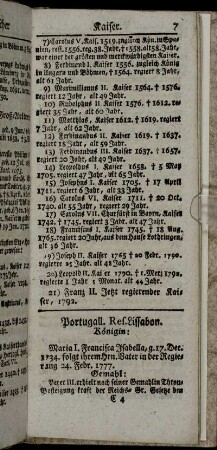 Kaiser. 7
7) Carolus V. Kais. 1519. zugleich Kön. in Spa-
nien, res. 1556. reg. 38. Jahr, † 1558. alt 58. Jahr,
war einer der größten und merkwürdigsten Kaiser.
8) Ferdinand I. Kaiser 1556. zugleich König
in Ungarn und Böhmen, † 1564. regiert 8 Jahr,
alt 61 Jahr.
9) Maximilianus II. Kaiser 1564. † 1576.
regiert 12 Jahr, alt 49 Jahr.
10) Rudolphus II. Kaiser 1576. † 1612. re-
giert 35 Jahr, alt 60 Jahr.
11) Matthias, Kaiser 1612. † 1619. regiert
6 Jahr, alt 62 Jahr.
12) Ferdinandus II. Kaiser 1619. † 1637.
regiert 18 Jahr, alt 59 Jahr.
13) Ferdinandus III. Kaiser 1637. † 1657.
regiert 20 Jahr, alt 49 Jahr.
14) Leopoldus I. Kaiser 1658. † 5 May
1705. regiert 47 Jahr, alt 65 Jahr.
15) Josephus I. Kaiser 1705. † 17 April
1711. regiert 6 Jahr, alt 33 Jahr.
16) Carolus VI. Kaiser 1711. † 20 Oct.
1740. alt 55 Jahr, regiert 29 Jahr.
17) Carolus VII. Churfürst in Bayern. Kaiser
1742. † 1745. regiert 3 Jahr, alt 47 Jahr.
18) Franciscus I. Kaiser 1745. † 18 Aug.
1765. regiert 20 Jahr, aus dem Hause Lothringen,
alt 56 Jahr.
19) Joseph II. Kaiser 1765. † 20 Febr. 1790.
regierte 25 Jahr. alt 41 Jahr.
20) Leopold II. Kaiser 1790. † 1. Merz 1792.
regiert 1 Jahr 1 Monat. alt 44 Jahr.
21) Franz II. Jetzt regierender Kai-
ser, 1792.
Portugall. Res. Lissabon.
Königin:
Maria I. Francisca Isabella, g. 17. Dec.
1734. folgt ihrem Hrn. Vater in der Regie-
rung 24 Febr. 1777.
Gemahl:
Peter III. erhielt nach seiner Gemahlin Thron-
Besteigung kraft der Reichs- Gr. Gesetze den
C 4